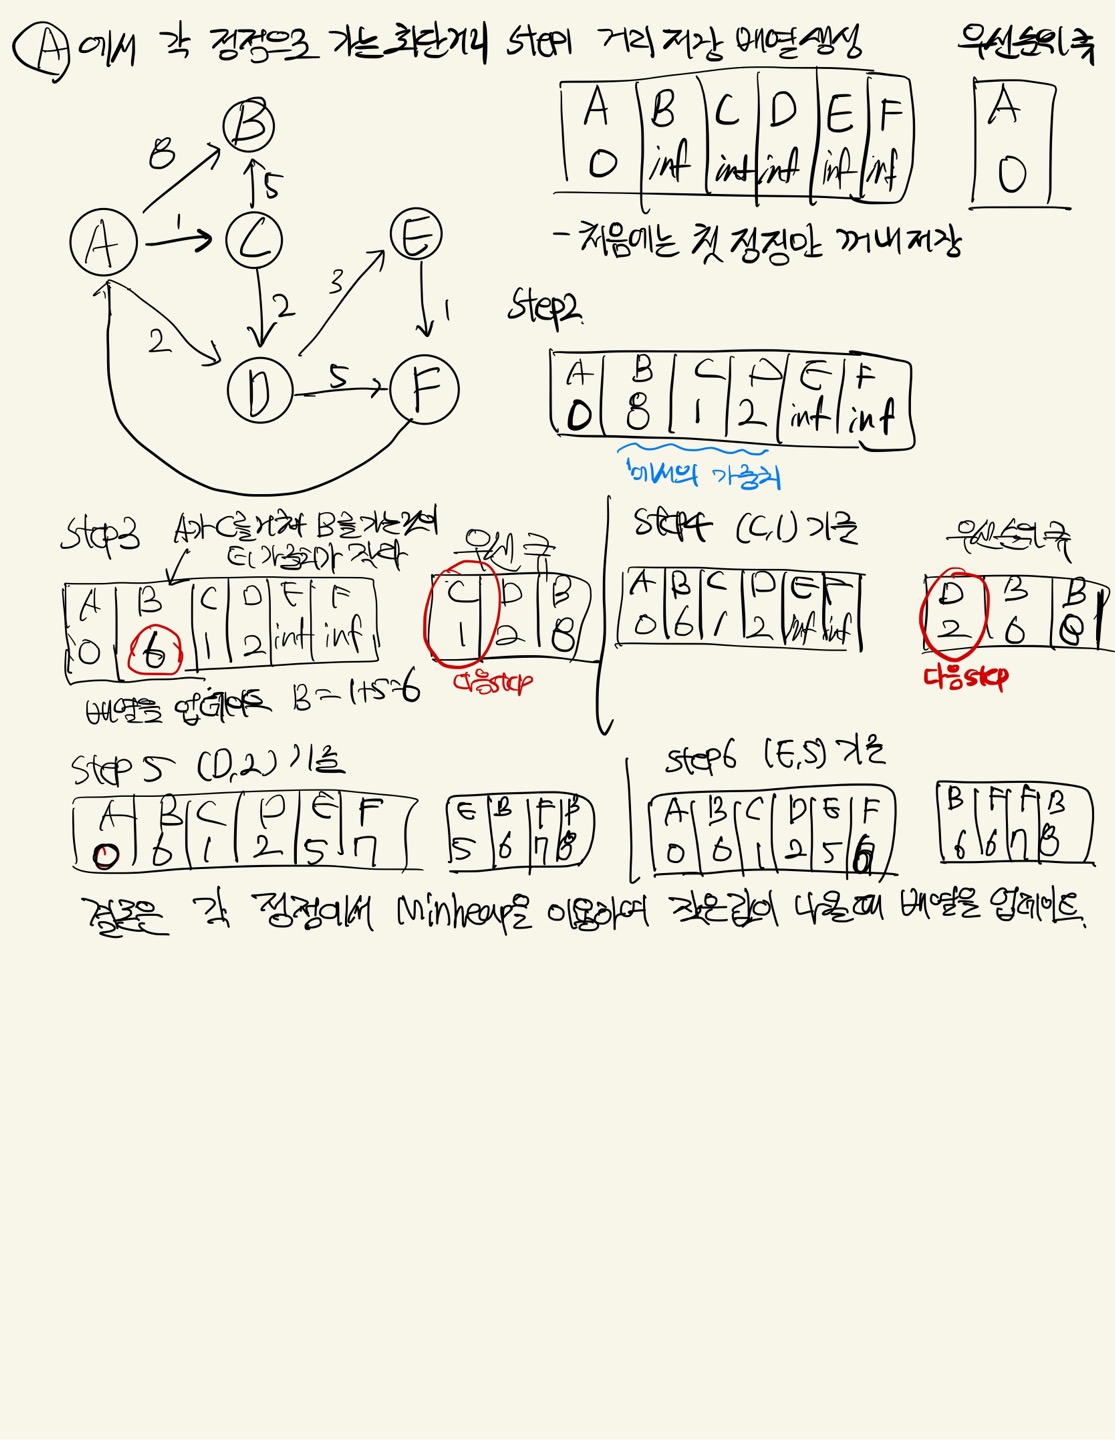 A 에서 각 정점으로 가는 최단거리 Step1 거리 저장 배열 생성 우선순위 큐
A B C D E F
0 inf inf inf inf inf
A
0
- 처음에는 첫 정점만 꺼내 저장
B
8
5
A 1 C E
2 2 3 1
D 5 F
Step2
A B C D E F
0 8 1 2 inf inf
에서의 가중치
Step3 A가 C를 거쳐 B를 가는것이
작다
우선 큐
A B C D E F
0 6 1 2 inf inf
C D B
1 2 8
다음step
배열을 업데이트 B = 1+5=6
Step4 (C,1) 기준 우선순위 큐
A B C D E F
0 6 1 2 inf inf
D B B
2 6 8
다음step
Step 5 (D,2) 기준
A B C D E F
0 6 1 2 5 7
E B F B
5 6 7 8
Step6 (E,5) 기준
A B C D E F
0 6 1 2 5 6
B F F B
6 6 7 8
결론은 각 정점에서 Minheap을 이용하여 작은값이 나올때 배열을 업데이트.